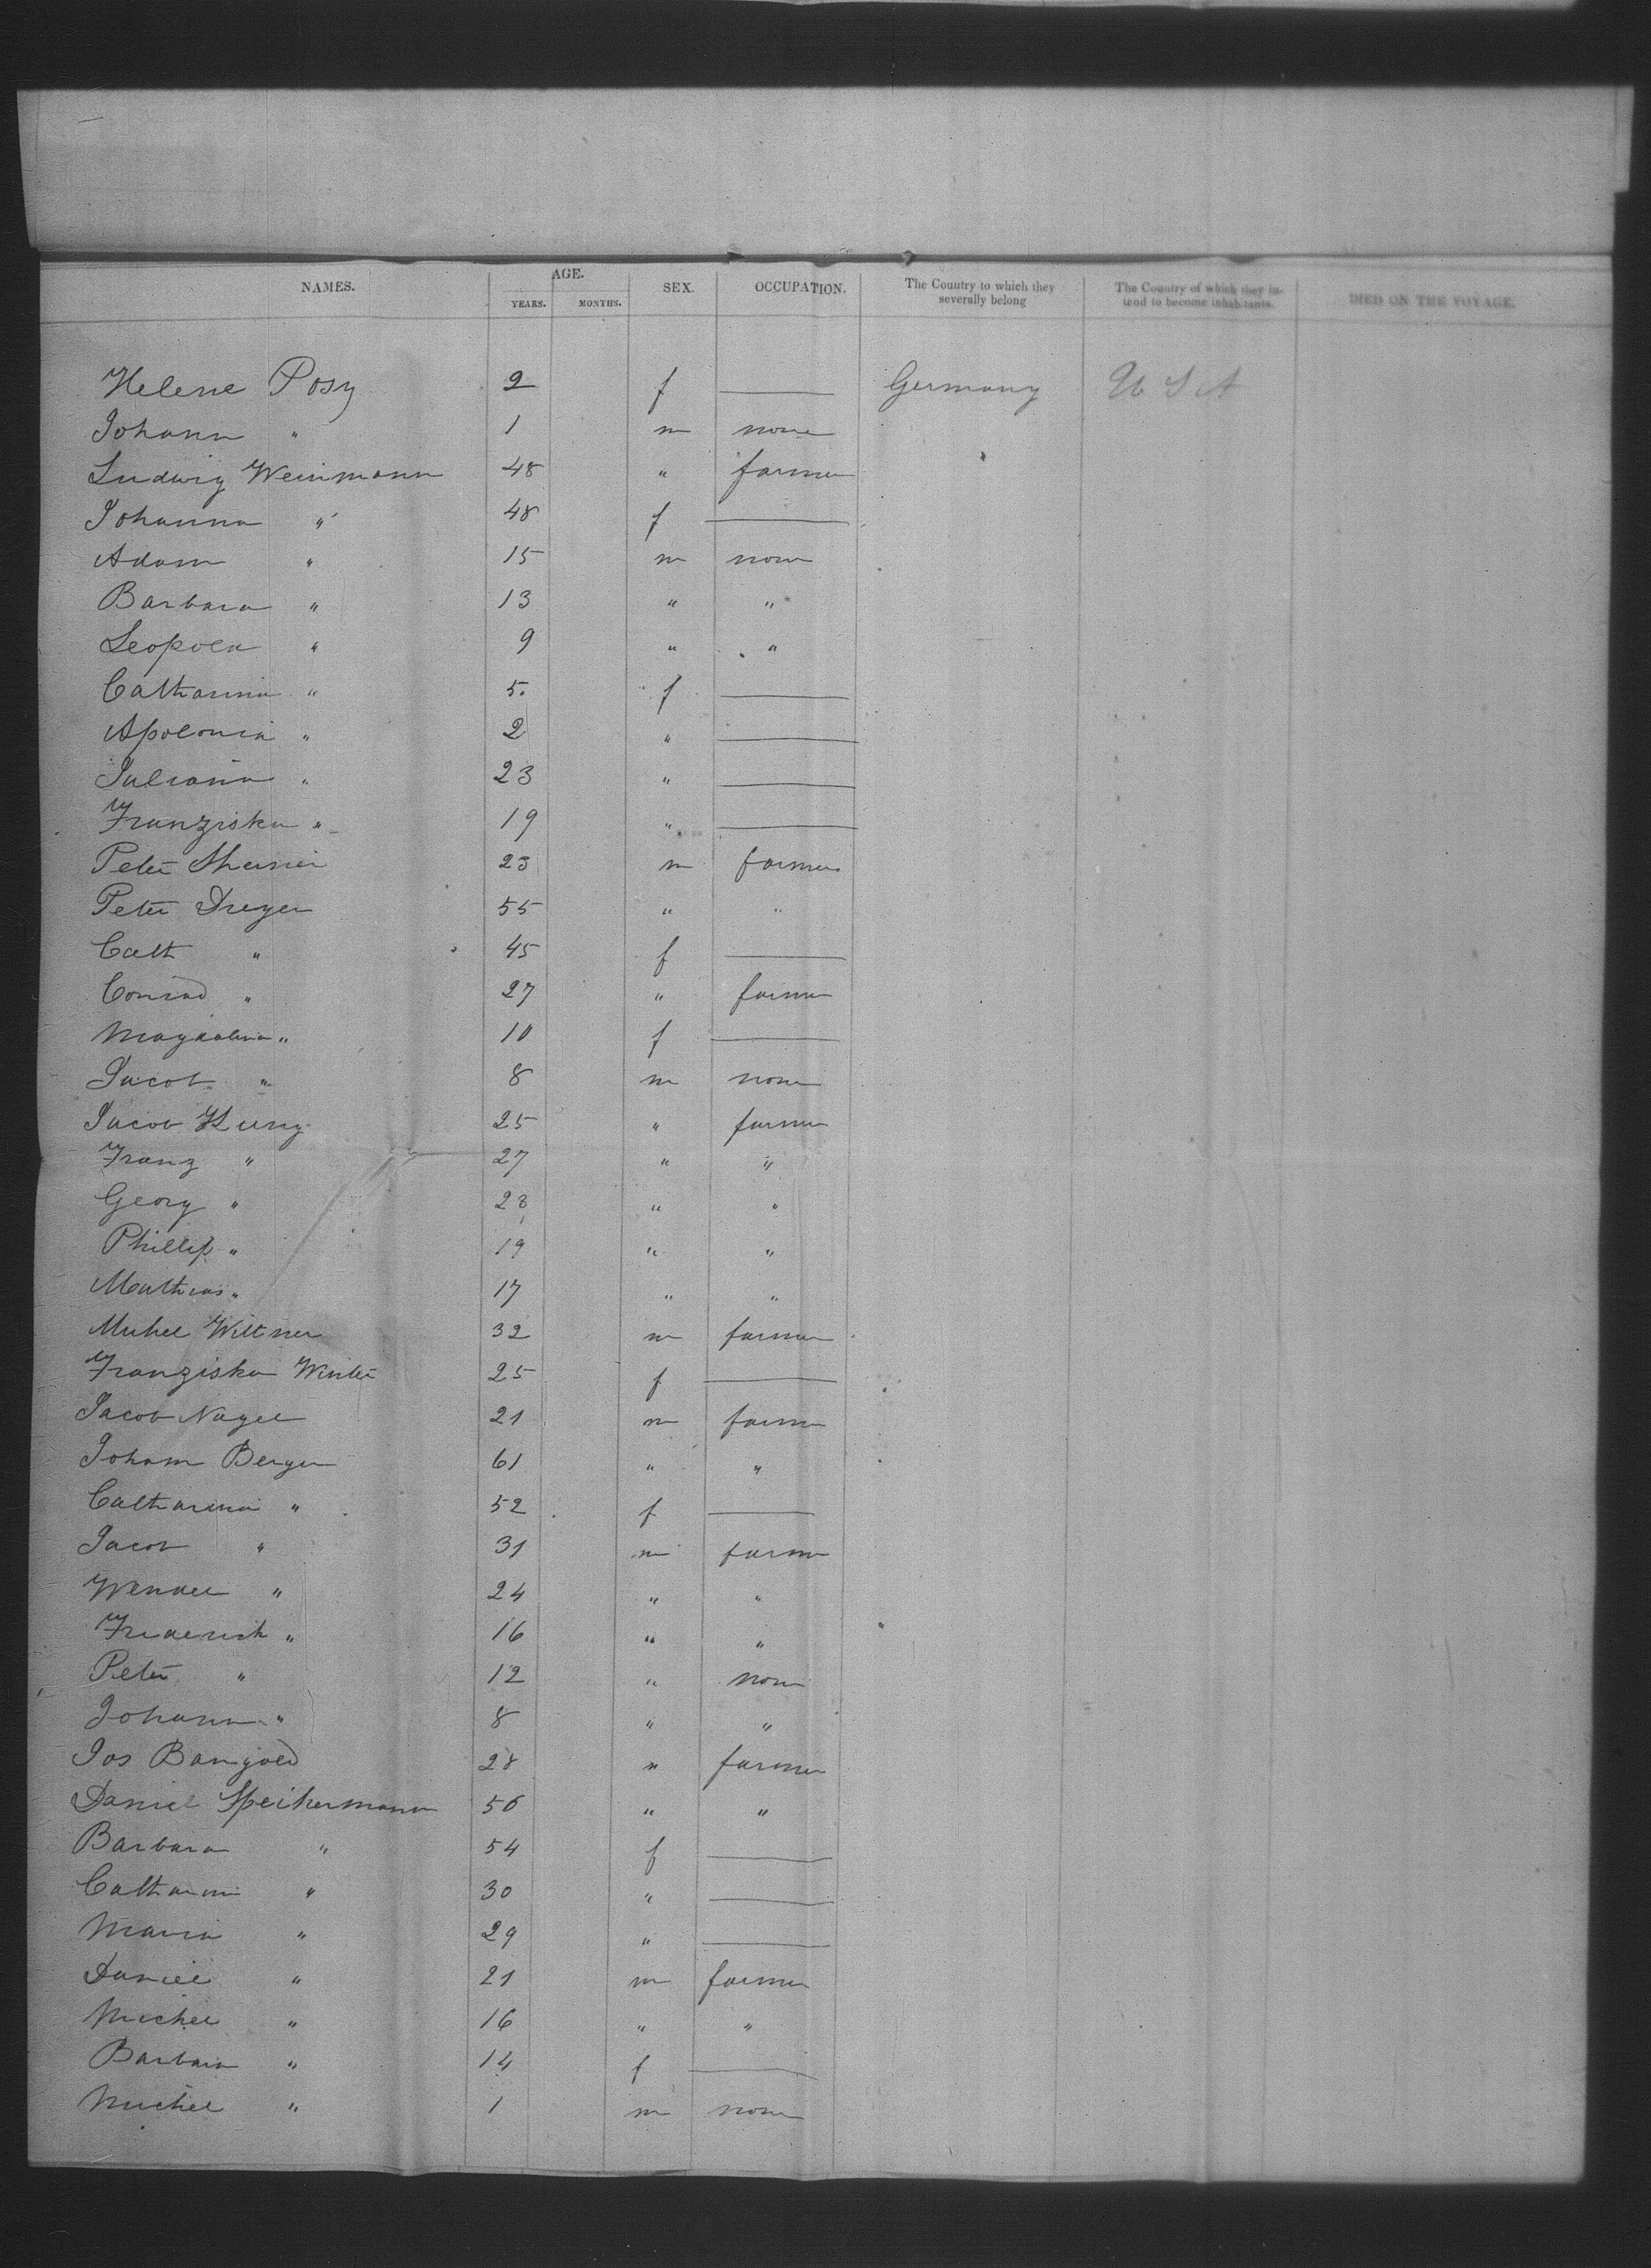 NAMES. AGE. YEARS. MONTHS. SEX. OCCUPATION. The Country to which they severally belong The Country of which they intend to become inhabitants. DIED ON THE VOYAGE.
Helene Posy 2 f — Germany U S A
Johann " 1 m none
Ludwig Weinmann 48 " farmer
Johanna " 48 f —
Adam " 15 m none
Barbara " 13 " "
Leopold " 9 " "
Catharina " 5 f —
Apolonia " 2 " —
Juliana " 23 " —
Franziska " 19 " —
Peter 23 m farmer
Peter Dreyer 55 " "
Cath " 45 f —
Conrad " 27 " farmer
Magdalena " 10 f —
Jacob " 8 m none
Jacob 25 " farmer
Franz " 27 " "
Georg " 28 " "
Phillip " 19 " "
Mathias " 17 " "
Michel Wiltner 32 m farmer
Franziska Winter 25 f —
Jacob Nagel 21 m farmer
Johann Berger 61 " "
Catharina " 52 f —
Jacob " 31 m farmer
Wendel " 24 " "
Friderich " 16 " "
Peter " 12 " none
Johann " 8 " "
Jos Bangold 28 " farmer
Daniel Speikermann 56 " "
Barbara " 54 f —
Catharina " 30 " —
Maria " 29 " —
Daniel " 21 m farmer
Michel " 16 " "
Barbara " 14 f —
Michel " 1 m none